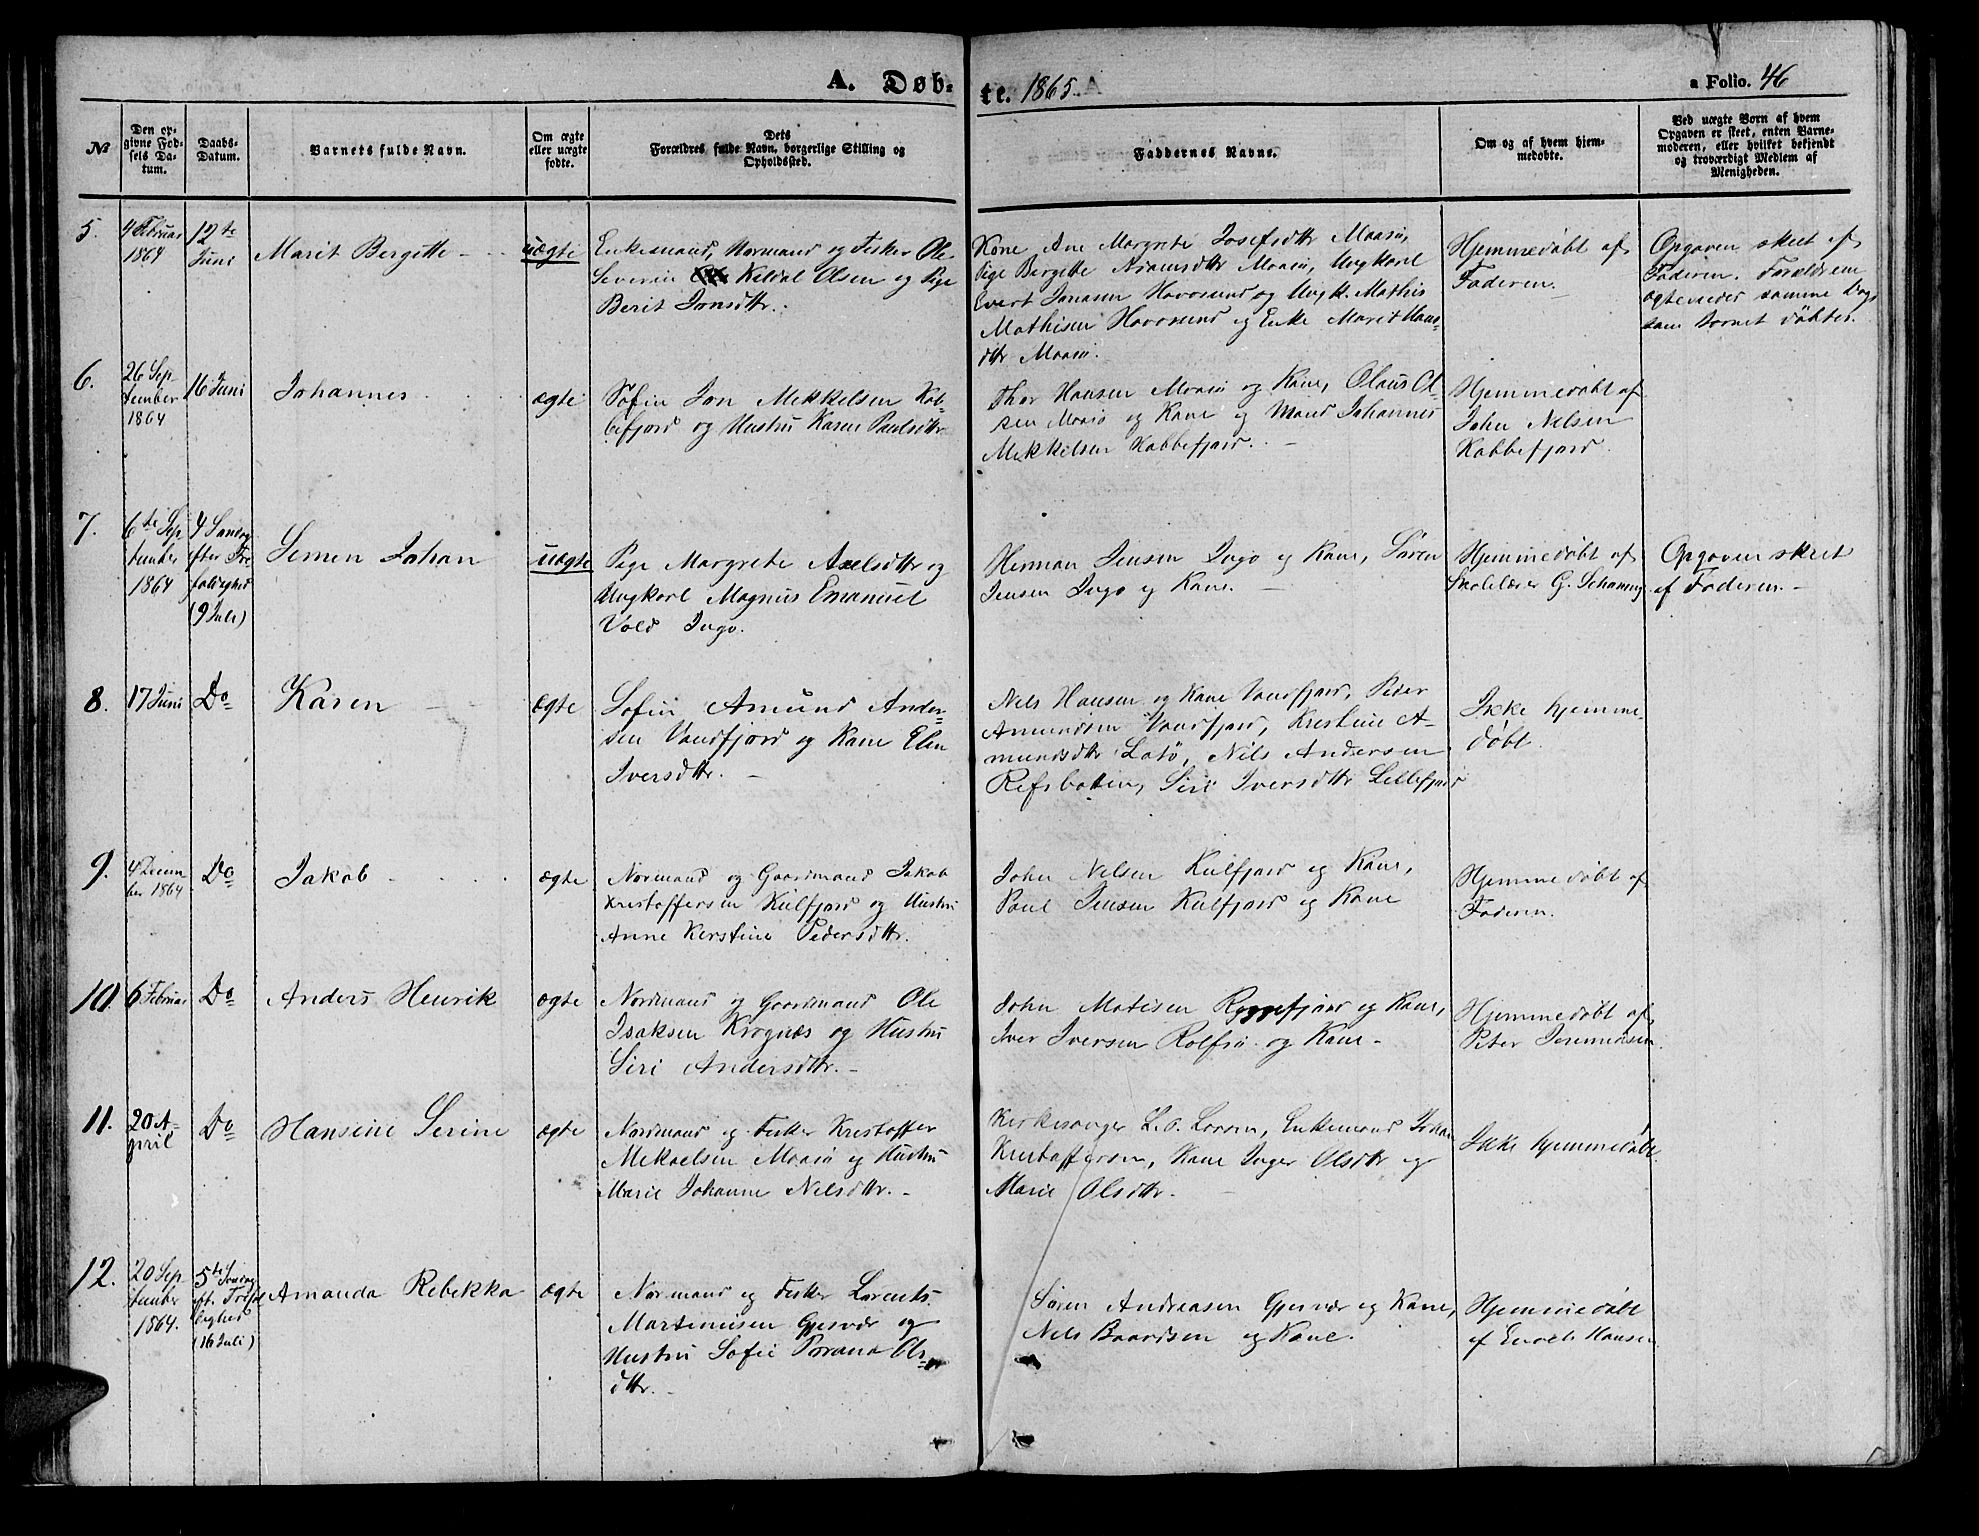 A. Døb-
te. 1865.
a Folio. 46
No
Den op-
givne Fød-
sels Da-
tum.
Daabs-
Datum.
Barnets fulde Navn.
Om ægte
eller uægte
fødte.
Dets
Forældres fulde Navn, borgerlige Stilling og
Opholdssted.
Faddernes Navne.
Om og af hvem hjem-
medøbte.
Ved uægte Børn af hvem
Opgaven er skeet, enten Barne-
moderen, eller hvilket bekjendt
og troværdigt Medlem af
Menigheden.
5.
4 Februar
1864
12te
Juni
Marit Bergitte
uægte
Enkemand, Normand og Fisker Ole
Severin Keldal Olsen og Pige
Berit Jonsdttr.
Kone Ane Margrete Josefsdttr Maasø,
Pige Bergitte Adamsdttr Maasø, Ungkarl
Evert Jonasen Havøsund og Ungk. Mathis
Mathisen Havøsund og Enke Marit Hans-
dttr Maasø.
Hjemmedøbt af
Faderen.
Opgaven skeet af
Faderen. Forældrene
ægtevieder samme Dag
som Barnet døbtes.
6.
26 Sep-
tember
1864
16 Juni
Johannes
ægte
Søfin Jon Mekkelsen Kob-
befjord og Hustru Karen Paulsdttr
Thor Hansen Maasø og Kone, Olaus Ol-
sen Maasø og Kone og Mand Johannes
Mekkelsen Kobbefjord.
Hjemmedøbt af
John Nelsen
Kobbefjord.
7.
6te Sep-
tember
1864
4 Søndag
efter Tre-
foldighed
(9 Juli)
Semen Johan
uægte
Pige Margrete Axelsdttr og
Ungkarl Magnus Emanuel
Vold Ingø.
Herman Jensen Ingø og Kone, Søren
Jensen Ingø og Kone.
Hjemmedøbt af
Skolelærer G. Schanning
Opgaven skeet
af Faderen.
8.
17 Juni
Do
Karen
Ægte
Søfin Amund Ander-
sen Vandfjord og Kone Elen
Iversdttr.
Nels Hansen og Kone Vandfjord, Peder
Amundsen Vandfjord, Kristine A-
mundsdttr Latø, Nils Andersen
Refsbotten, Siri Iversdttr Lillefjord
Ikke hjemme-
døbt.
9.
4 Decem-
ber 1864
Do
Jakob
ægte
Normand og Gaardmand Jakob
Kristoffersen Kulfjord og Hustru
Anne Kerstine Pedersdttr.
John Nelsen Kulfjord og Kone,
Paul Jensen Kulfjord og Kone
Hjemmedøbt af
Faderen.
10.
6 Februar
Do
Anders Henrik
ægte
Nordmand og Gaardmand Ole
Isaksen Krognæs og Hustru
Siri Andersdttr.
John Matisen Ryggefjord og Kone,
Iver Iversen Rolfsø og Kone
Hjemmedøbt af
Peter Jeremiasen.
11.
20 A-
pril
Do
Hansine Serine
ægte
Nordmand og Fisker Kristoffer
Mekaelsen Maasø og Hustru
Marie Johanne Nelsdttr.
Kirkesanger L. O. Larsen, Enkemand Johan
Kristoffersen, Kone Inger Olsdttr og
Marie Olsdttr.
Ikke hjemmedøbt.
12.
20 Sep-
tember
1864.
5te Søndag
eft. Trefol-
dighed
(16 Juli)
Amanda Rebekka
ægte
Normand og Fisker Lorents
Martenusen Gjesvær og
Hustru Sofie Ols-
dttr.
Søren Andreasen Gjesvær og Kone,
Nels Baardsen og Kone.
Hjemmedøbt
af Enoch Hansen